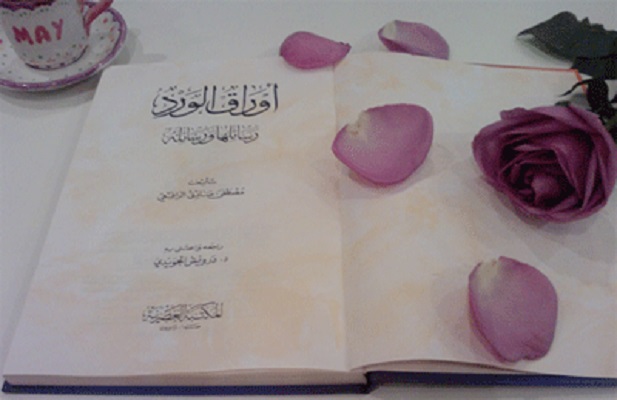 MAY
أوراق الورد
رسائلها ورسائله
تأليف
مصطفى صادق الرافعي
راجعه واعتنى به
د. درويش الجويدي
المكتبة العصرية